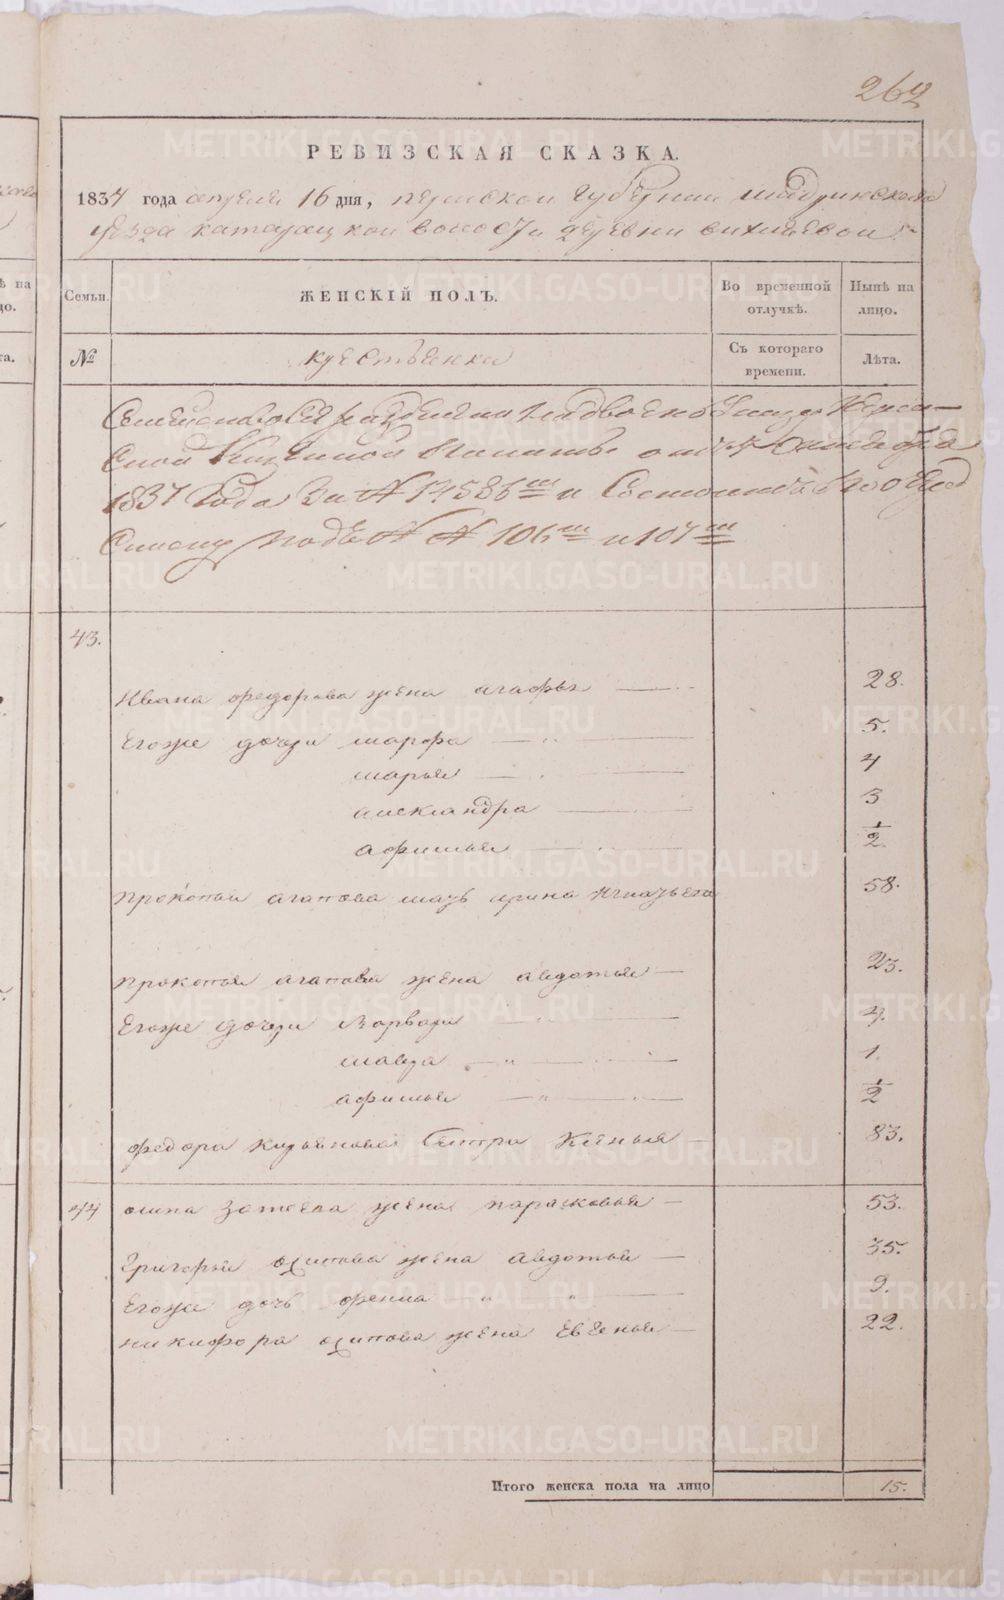 262
РЕВИЗСКАЯ СКАЗКА.
1834 года апреля 16 дня, пермской губернии шадринскаго
уезда катайской волости деревни вихилевой
Семьи. ЖЕНСКІЙ ПОЛЪ. Во временной отлучкѣ. Нынѣ на лицо.
№ крестьянки Съ котораго времени. Лѣта.
Семейство сіе разделено на двое по Указу Перм-
ской Казенной Палаты от 27 Октября
1837 Года За № 14586м и Состоитъ
подъ № № 106м и 107м
43.
Ивана федорова жена агафья 28.
Егоже дочери марфа 5.
марья 4
александра 3
афимья 1/2.
прокопья агапова мать ирина Игнатьева 58.
прокопья агапова жена авдотья 23.
Егоже дочери Варвара 4.
мавра 1.
афимья 1/2
федора кирьянова Сестра Ксенья 83.
44 осипа зотеева жена парасковья 53.
Григорья осипова жена авдотья 35.
Егоже дочь фекла 9.
никифора осипова жена Евгенья 22.
Итого женска пола на лицо 15.
METRIKI.GASO-URAL.RU